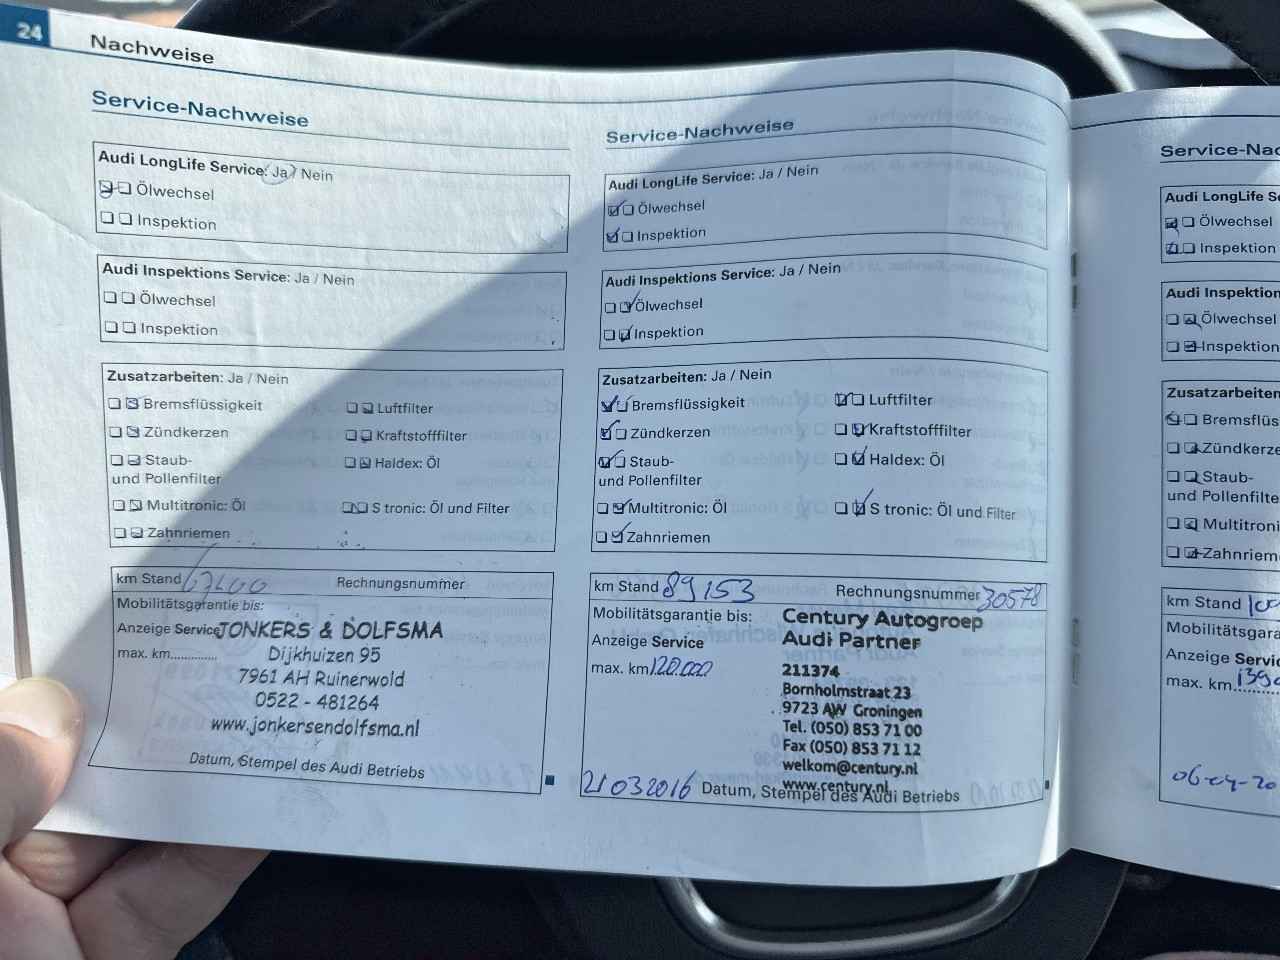 24
Nachweise
Service-Nachweise
Audi LongLife Service: Ja / Nein
Ölwechsel
Inspektion
Audi Inspektions Service: Ja / Nein
Ölwechsel
Inspektion
Zusatzarbeiten: Ja / Nein
Bremsflüssigkeit Luftfilter
Zündkerzen Kraftstofffilter
Staub- Haldex: Öl
und Pollenfilter
Multitronic: Öl S tronic: Öl und Filter
Zahnriemen
km Stand Rechnungsnummer
Mobilitätsgarantie bis:
Anzeige Service
max. km.............
JONKERS & DOLFSMA
Dijkhuizen 95
7961 AH Ruinerwold
0522 - 481264
www.jonkersendolfsma.nl
Datum, Stempel des Audi Betriebs
Service-Nachweise
Audi LongLife Service: Ja / Nein
Ölwechsel
Inspektion
Audi Inspektions Service: Ja / Nein
Ölwechsel
Inspektion
Zusatzarbeiten: Ja / Nein
Bremsflüssigkeit Luftfilter
Zündkerzen Kraftstofffilter
Staub- Haldex: Öl
und Pollenfilter
Multitronic: Öl S tronic: Öl und Filter
Zahnriemen
km Stand 89153 Rechnungsnummer 30578
Mobilitätsgarantie bis:
Anzeige Service
max. km 120.000
Century Autogroep
Audi Partner
211374
Bornholmstraat 23
9723 AW Groningen
Tel. (050) 853 71 00
Fax (050) 853 71 12
welkom@century.nl
www.century.nl
21 03 2016 Datum, Stempel des Audi Betriebs
Service-Nac
Audi LongLife Se
Ölwechsel
Inspektion
Audi Inspektion
Ölwechsel
Inspektion
Zusatzarbeiten
Bremsflüs
Zündkerze
Staub-
und Pollenfilte
Multitroni
Zahnriem
km Stand
Mobilitätsgara
Anzeige Servic
max. km
06-04-20